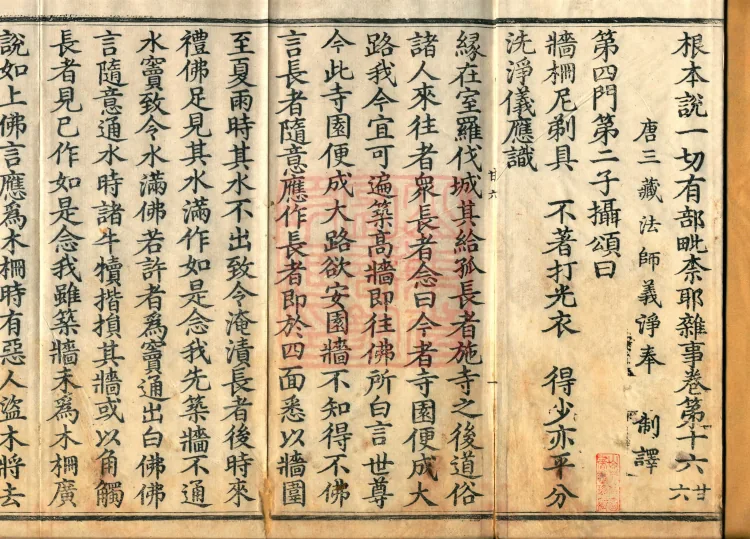 根本說一切有部毗奈耶雜事卷第十六 甘六
唐三藏法師義淨奉 制譯
第四門第二子攝頌曰
牆柵尼剃具 不著打光衣 得少亦平分
洗淨儀應識
緣在室羅伐城其給孤長者施寺之後道俗
甘六
諸人來往者衆長者念曰今者寺園便成大
路我今宜可遍築高牆即往佛所白言世尊
今此寺園便成大路欲安園牆不知得不佛
言長者隨意應作長者即於四面悉以牆圍
至夏雨時其水不出致令淹漬長者後時來
禮佛足見其水滿作如是念我先築牆不通
水竇致令水滿佛若許者爲竇通出白佛佛
言隨意通水時諸牛犢揩損其牆或以角觸
長者見已作如是念我雖築牆未爲木柵廣
說如上佛言應爲木柵時有惡人盜木將去